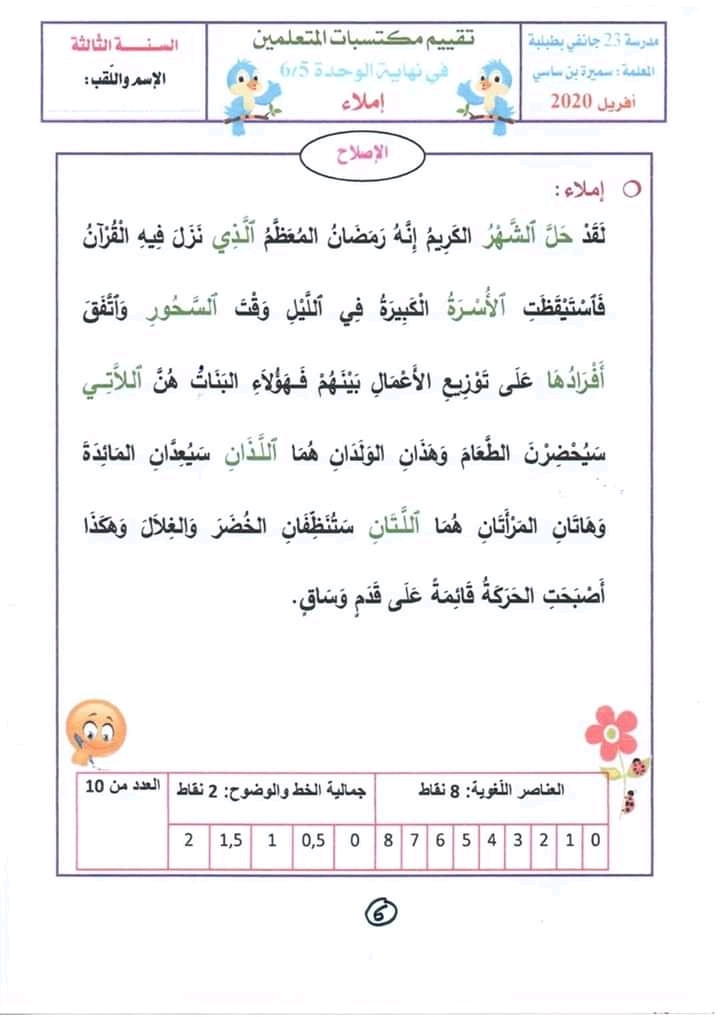 مدرسة 23 جانفي بطبلبة
المعلمة : سميرة بن ساسي
أفريل 2020
تقييم مكتسبات المتعلمين
في نهاية الوحدة 6/5
إملاء
السنــة الثالثة
الإسم واللّقب :
الإصلاح
إملاء :
لَقَدْ حَلَّ ٱلشَّهْرُ الكَرِيمُ إِنَّهُ رَمَضَانُ المُعَظَّمُ ٱلَّذِي نَزَلَ فِيهِ الْقُرْآنُ
فَٱسْتَيْقَظَتِ ٱلأُسْرَةُ الْكَبِيرَةُ فِي اللَّيْلِ وَقْتَ ٱلسَّحُورِ وَٱتَّفَقَ
أَفْرَادُهَا عَلَى تَوْزِيعِ الأَعْمَالِ بَيْنَهُمْ فَـهَؤُلَاءِ البَنَاتُ هُنَّ ٱللاَّتِي
سَيُحْضِرْنَ الطَّعَامَ وَهَذَانِ الوَلَدَانِ هُمَا ٱللَّذَانِ سَيُعِدَّانِ المَائِدَةَ
وَهَاتَانِ المَرْأَتَانِ هُمَا ٱللَّتَانِ سَتُنَظِّفَانِ الخُضَرَ وَالغِلاَلَ وَهَكَذَا
أَصْبَحَتِ الحَرَكَةُ قَائِمَةً عَلَى قَدَمٍ وَسَاقٍ.
العناصر اللّغوية: 8 نقاط جمالية الخط والوضوح: 2 نقاط العدد من 10
0 1 2 3 4 5 6 7 8 0 0,5 1 1,5 2
6